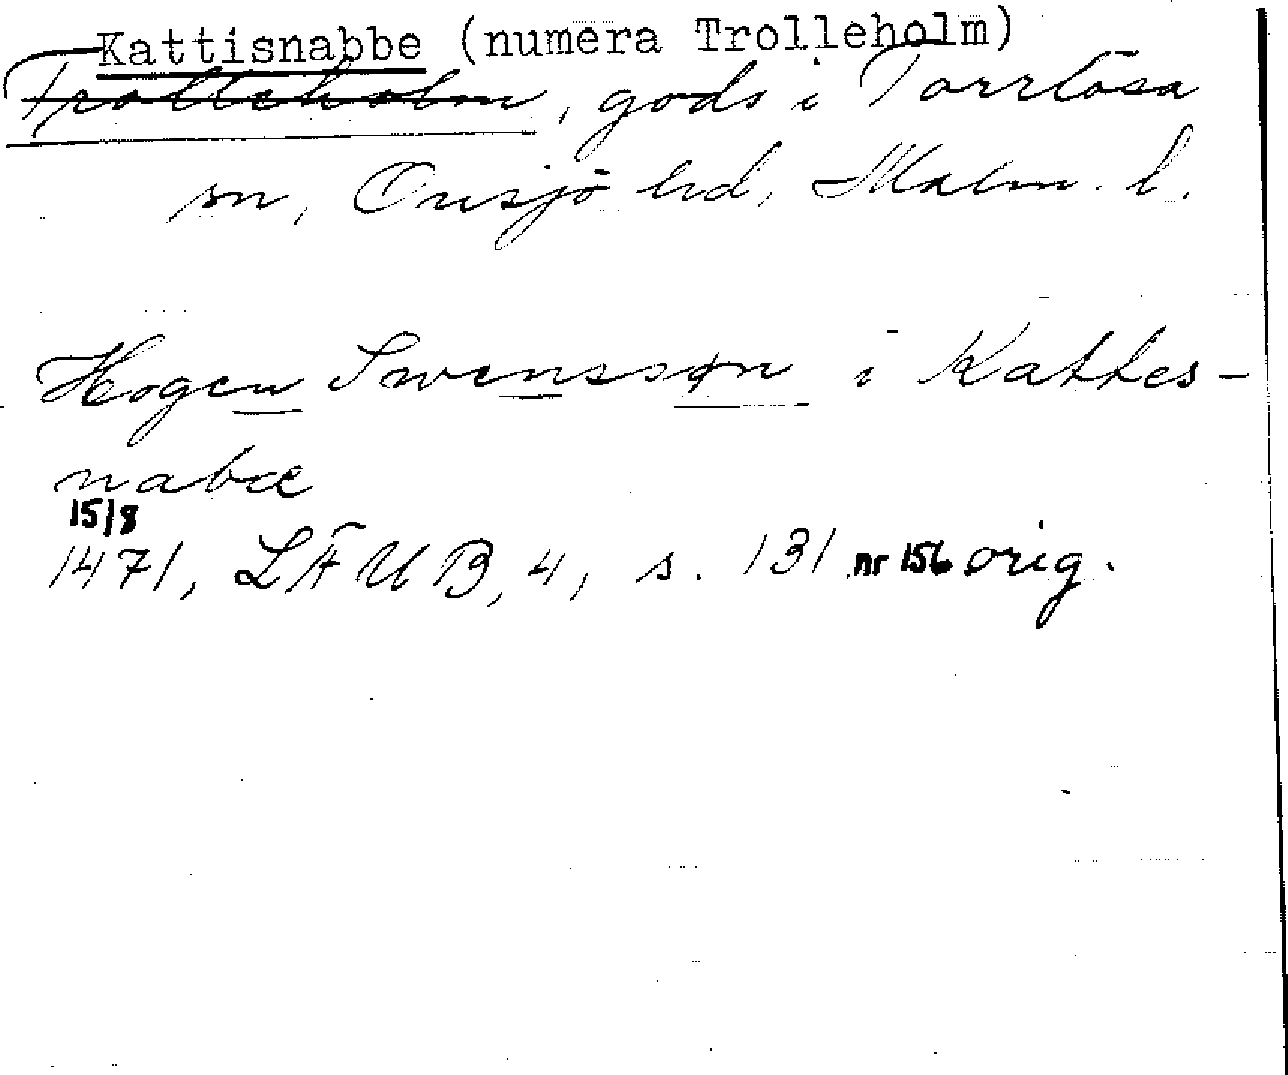 Kattisnabbe (numera Trolleholm)
Trolleholm, gods i Torrlösa
sn, Onsjö hd, Malm. l.
Hogen Swenssøn i Kattes-
nabæ
15/8
1471, LÄUB, 4, s. 131 nr 156 orig.